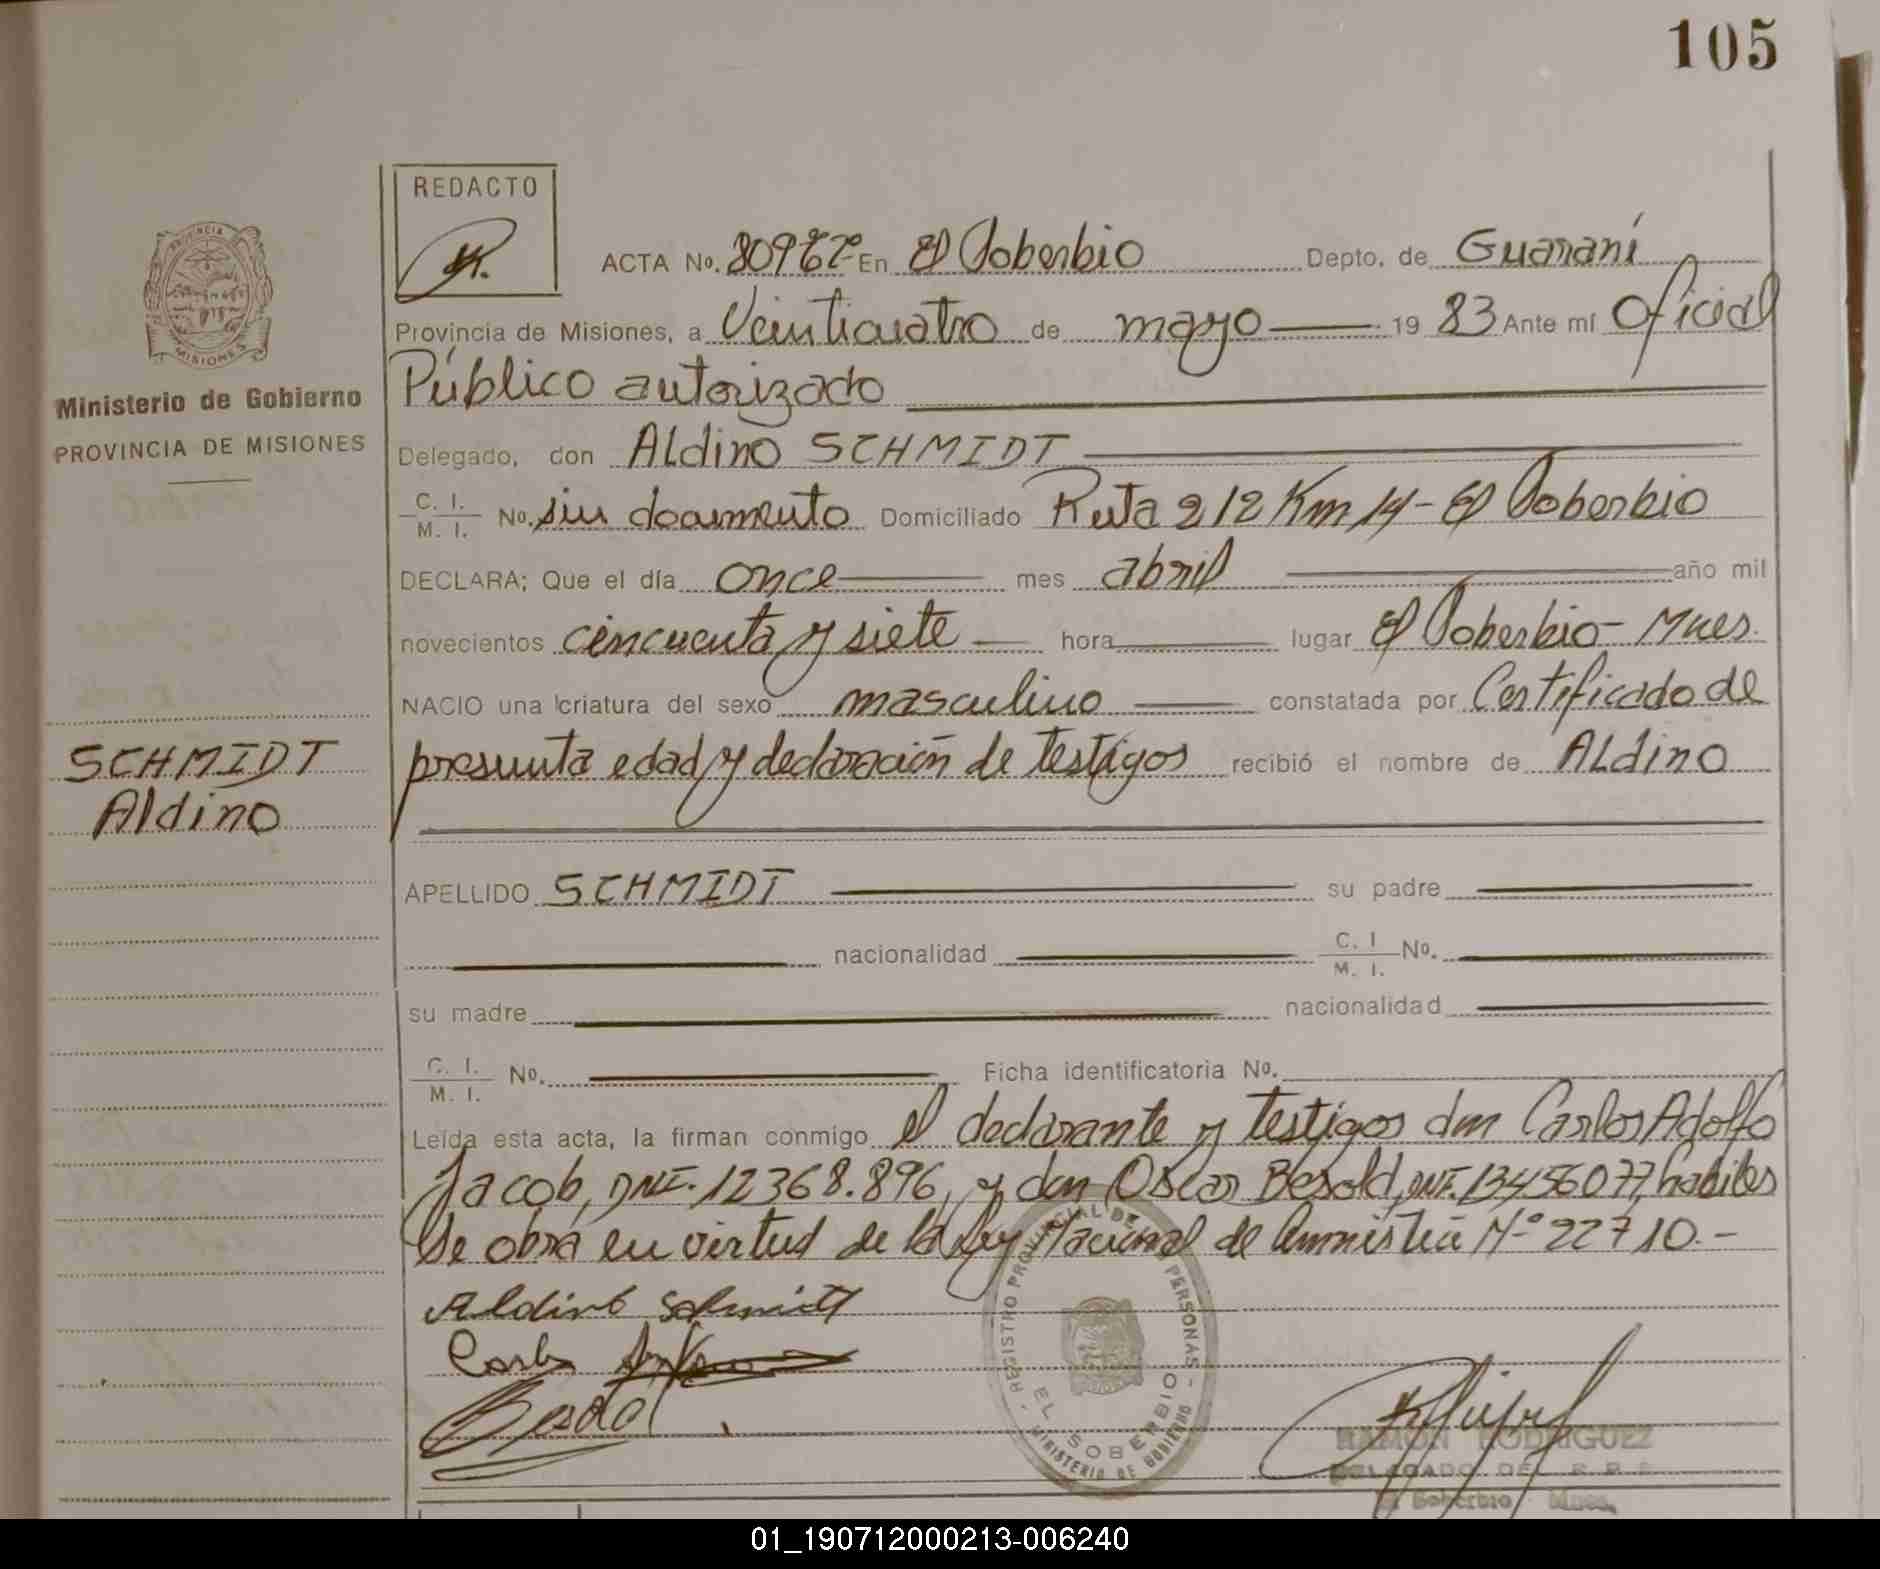 105
REDACTO
ACTA No. En El Soberbio Depto. de Guaraní
Provincia de Misiones, a Veinticuatro de mayo 19 83 Ante mí Oficial
Público autorizado
Ministerio de Gobierno
PROVINCIA DE MISIONES
Delegado, don Aldino SCHMIDT
C. I.
M. I. No. sin documento Domiciliado Ruta 212 Km 14 - El Soberbio
DECLARA; Que el día once mes abril año mil
novecientos cincuenta y siete hora lugar El Soberbio - Mnes.
NACIO una criatura del sexo masculino constatada por Certificado de
SCHMIDT
Aldino
presunta edad y declaración de testigos recibió el nombre de Aldino
APELLIDO SCHMIDT su padre
nacionalidad C. I
M. I. No.
su madre nacionalidad
C. I.
M. I. No. Ficha identificatoria No.
Leída esta acta, la firman conmigo el declarante y testigos don Carlos Adolfo
Jacob, DNI. 12368.896, y don Oscar Besold, DNI. 13456077, habiles
Se obra en virtud de la Ley Nacional de Amnistía Nº 22710.-
Aldino Schmidt
Carlos
REGISTRO PROVINCIAL DE LAS PERSONAS
EL SOBERBIO
MINISTERIO DE GOBIERNO
RAMON RODRIGUEZ
DELEGADO DEL R. P. P.
El Soberbio Mnes.
01_190712000213-006240